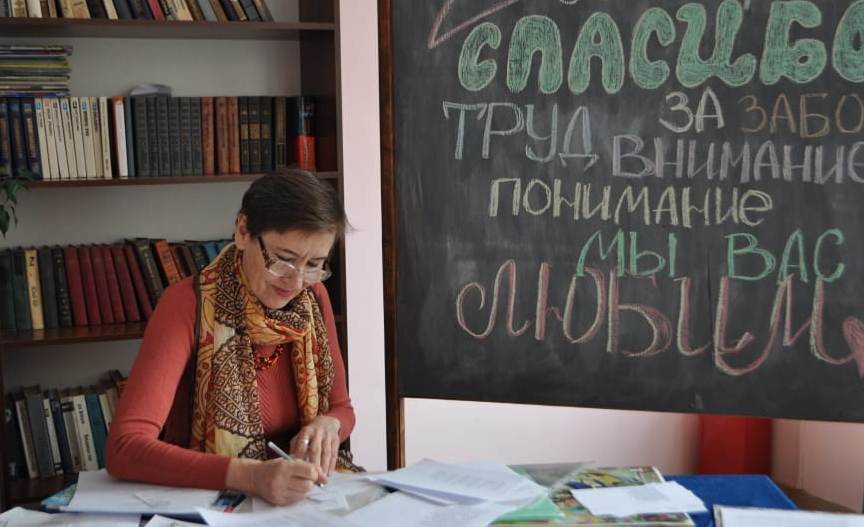 СПАСИБО
ЗА ЗАБО
ТРУД ВНИМАНИЕ
ПОНИМАНИЕ
МЫ ВАС
ЛЮБИМ